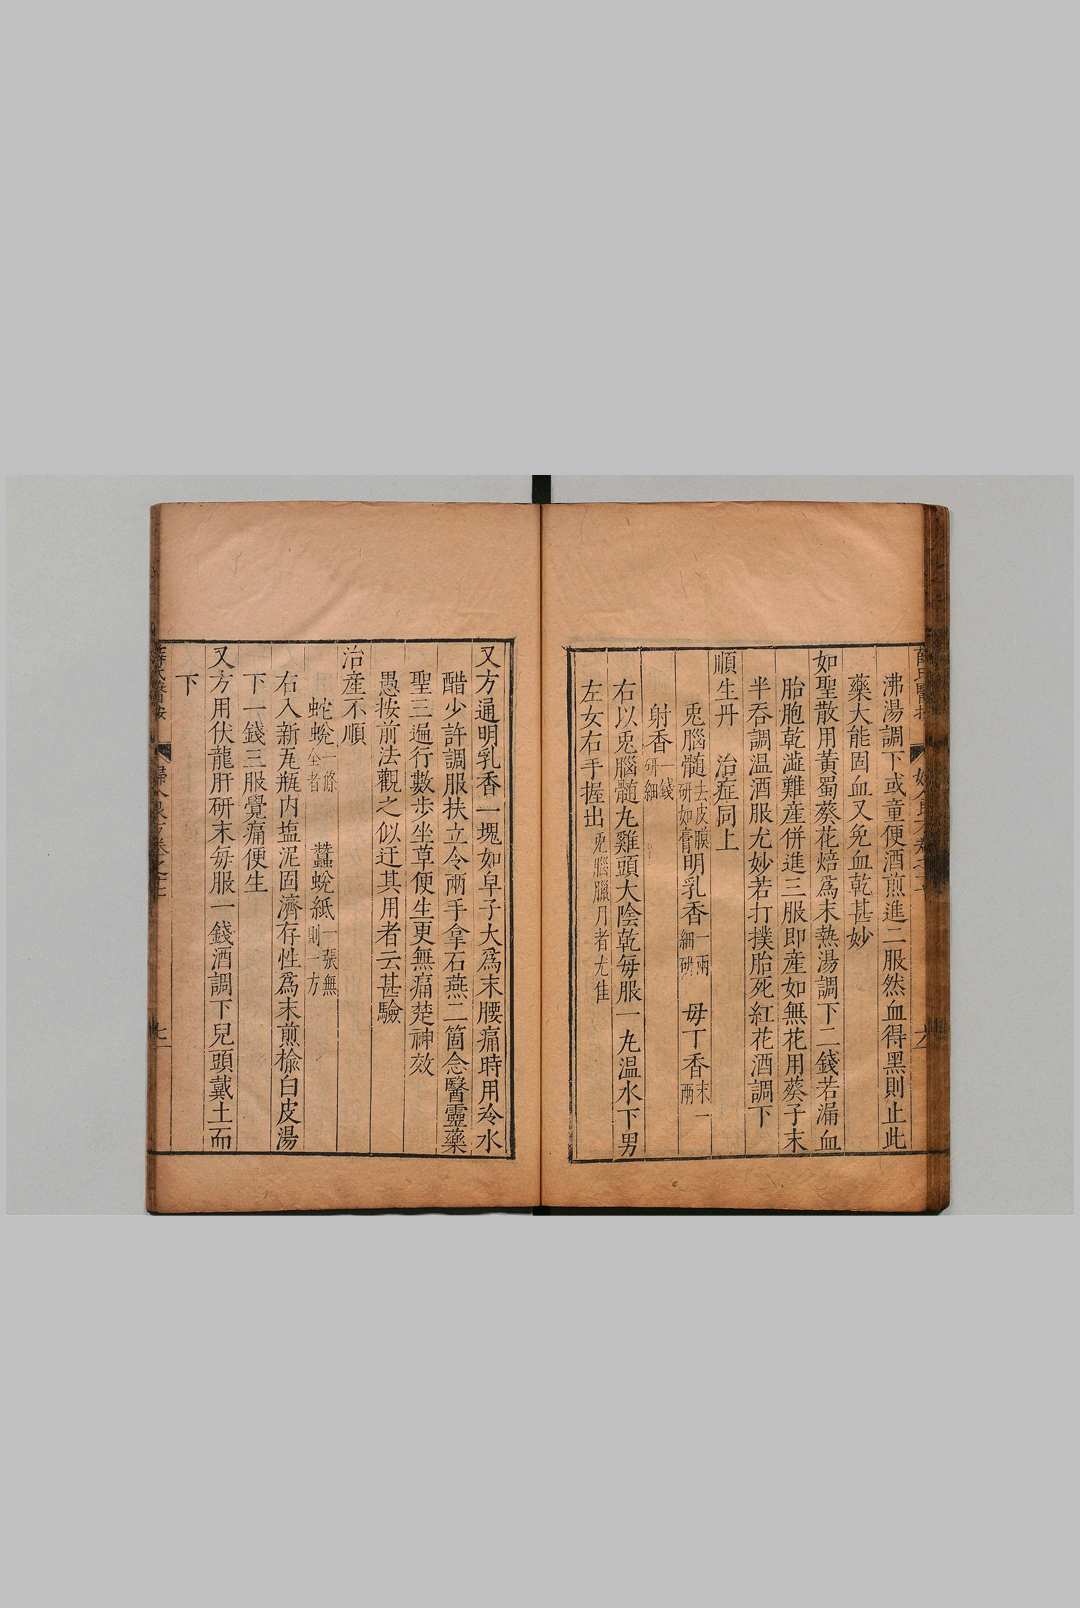 沸湯調下或童便酒煎進二服然血得黑則止此
藥大能固血又免血乾甚妙
如聖散用黃蜀葵花焙爲末熱湯調下二錢若漏血
胎胞乾澁難產併進三服即產如無花用葵子末
半呑調温酒服尤妙若打撲胎死紅花酒調下
順生丹　治症同上
兎腦髓去皮膜研如膏　明乳香一兩細研　毋丁香末一兩
射香一錢研細
右以兎腦髓丸雞頭大陰乾每服一丸温水下男
左女右手握出兎腦臘月者尤佳
又方通明乳香一塊如皁子大爲末腰痛時用冷水
醋少許調服扶立令兩手拿石燕二箇念醫靈藥
聖三遍行數步坐草便生更無痛楚神效
愚按前法觀之似迂其用者云甚驗
治產不順
蛇蛻一條全者　蠶蛻紙一張無則一方
右入新瓦瓶內塩泥固濟存性爲末煎楡白皮湯
下一錢三服覺痛便生
又方用伏龍肝研末每服一錢酒調下兒頭戴土而
下
薛氏醫按
婦人良方卷之七
七